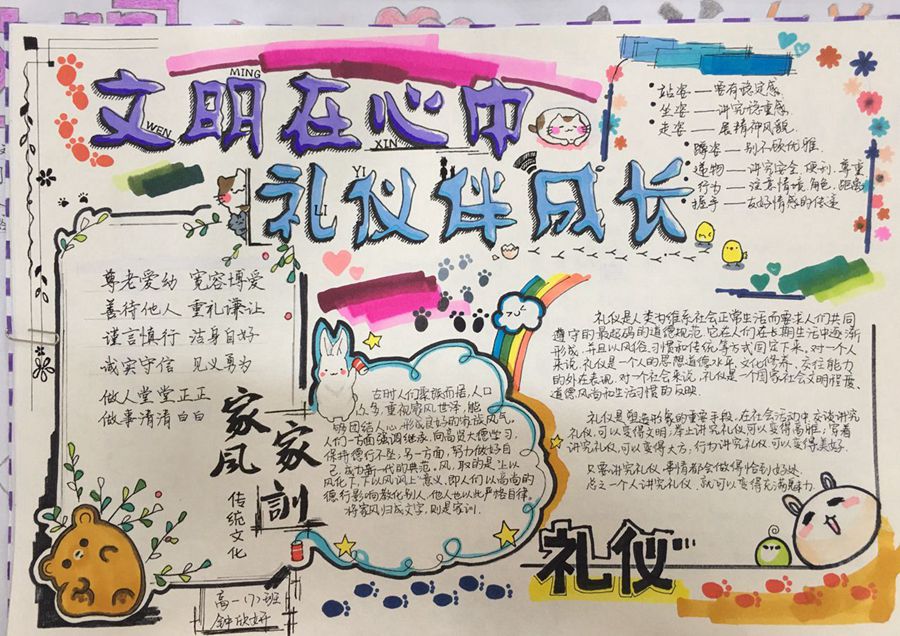 文明在心中
MING
WEN
XIN
礼仪伴成长
LI
YI
站姿——要有稳定感
坐姿——讲究稳重感
走姿——展精神风貌
蹲姿——别不欣优雅
递物——讲究安全,便利,尊重
行力——注意情境,角色,距离
握手——友好情感的传递
尊老爱幼 宽容博爱
善待他人 重礼谦让
谨言慎行 洁身自好
诚实守信 见义勇为
做人堂堂正正
做事清清白白
家风
家训
传统文化
古时人们聚族而居,人口
众多,重视家风世泽,能
够团结人心,形成良好的有族风气,
人们一方面强调继承,向高贤大德学习,
保持德行不坠;另一方面,努力做好自
己,成为新一代的典范,风,取的是"上以
风化下,下以风讽上"意义,即人们以高尚的
德行影响教化别人,他人也以此严格自律,
将家风归成文字,则是家训.
礼仪是人类为维系社会正常生活而要求人们共同
遵守的最起码的道德规范,它在人们在长期生活中逐渐
形成,并且以风俗习惯和传统等方式固定下来,对一个人
来说,礼仪是一个人的思想道德水平,文化修养,交往能力
的外在表现,对一个社会来说,礼仪是一个国家社会文明程度、
道德风尚和生活习惯的反映
礼仪是塑造形象的重要手段,在社会活动中,交谈讲究
礼仪,可以变得文明;举止讲究礼仪可以变得高雅;穿着
讲究礼仪,可以变得大方;行为讲究礼仪,可以变得美好.
只要讲究礼仪,事情都会做得恰到好处.
总之一个人讲究礼仪,就可以变得充满魅力.
礼仪
高一(7)班
钟欣妍